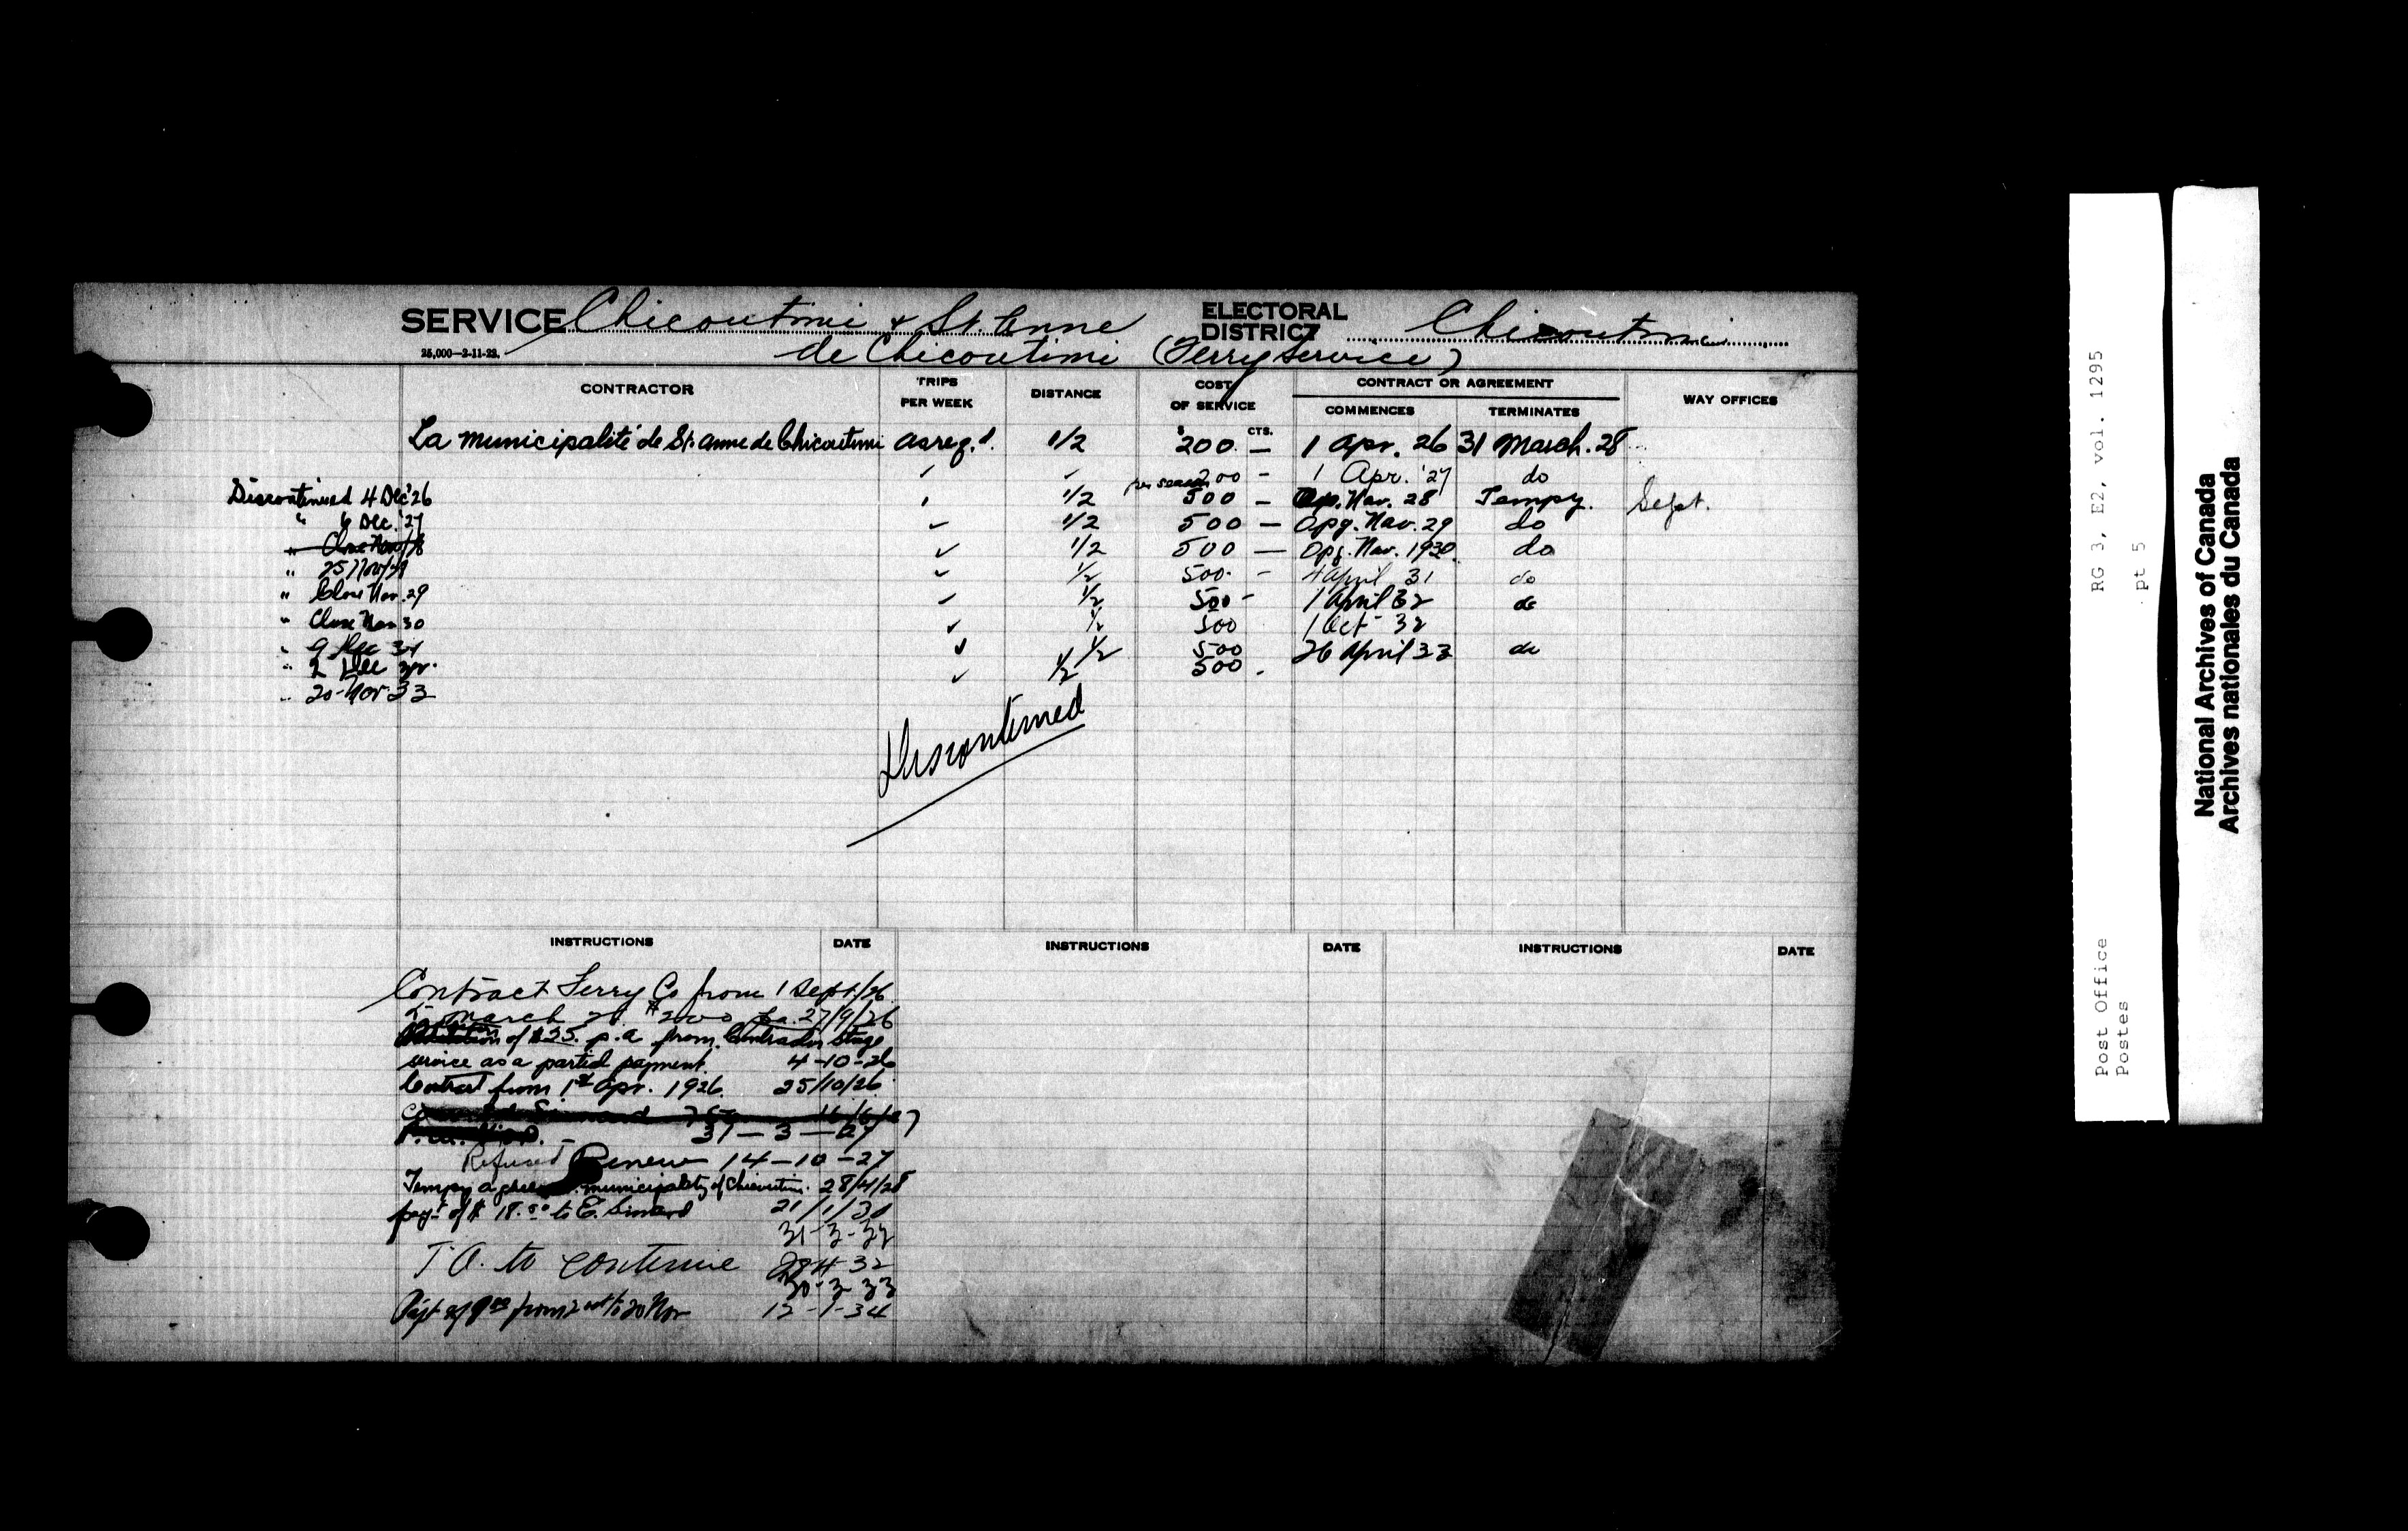 SERVICE Chicoutimi & St. Anne
ELECTORAL DISTRICT Chicoutimi
25,000—2-11-23.
de Chicoutimi (Ferry Service)
CONTRACTOR TRIPS PER WEEK DISTANCE COST OF SERVICE CONTRACT OR AGREEMENT WAY OFFICES
COMMENCES TERMINATES
$ CTS.
La municipalité de St. anne de Chicoutimi as req.d. 1/2 200. — 1 Apr. 26 31 March. 28
200 - 1 Apr. '27 do
Discontinued 4 Dec '26 per season 1/2 500 — Op. Nav. 28 Tempy. Sept.
" 6 Dec. '27 1/2 500 — Opg. Nav. 29 do
" Close Nav/28 1/2 500 — Opg. Nav. 1930 do
" 25 Nov/ 1/2 500. - 4 April 31 do
" Close Nav. 29 1/2 500 - 1 April 32 do
" Close Nav 30 1/2 500 1 Oct 32
" 9 Dec 31 1/2 500 26 April 33 do
" 2 Dec 1/2 500 .
" 20-Nov-33
Discontinued
INSTRUCTIONS DATE INSTRUCTIONS DATE INSTRUCTIONS DATE
Contract Ferry Co from 1 Sept/26
March $200 27/9/26
of $25. p.a from Contractor Stage
service as a partial payment. 4-10-26
Contract from 1st Apr. 1926. 25/10/26
31-3-27
Refused Renew 14-10-27
Tempy municipality of Chicoutimi. 28/4/28
payt of $18.50 to E. Simard 21/1/30
31-3-32
T.A. to continue 28 4 32
30-3-33
from 2 to 20 Nov 12-1-34
Post Office RG 3, E2, vol. 1295
Postes pt 5
National Archives of Canada
Archives nationales du Canada